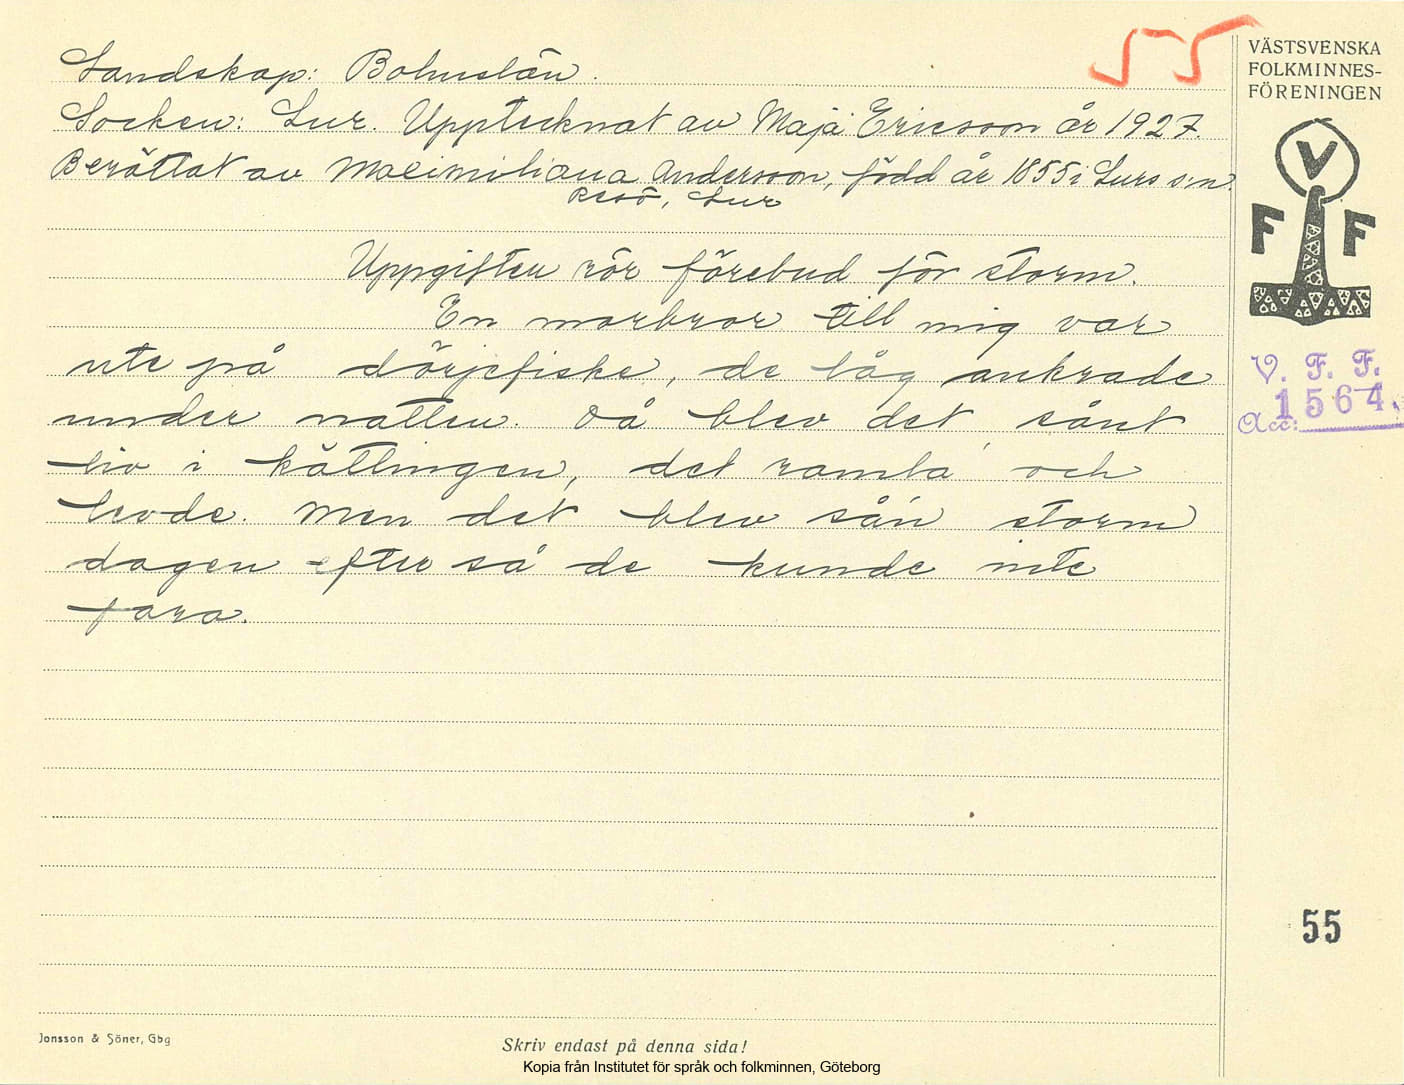 55
Landskap: Bohuslän.
Socken: Lur. Upptecknat av Maja Ericsson år 1927.
Berättat av Maximiliana Andersson, född år 1855 i Lurs s:n.
Resö, Lur
Uppgiften rör förebud för storm.
En morbror till mig var
ute på dörjefiske, de låg ankrade
under natten. Då blev det sånt
liv i kättingen, det ramla' och
levde. Men det blev sån storm
dagen efter så de kunde inte
fara.
VÄSTSVENSKA
FOLKMINNES-
FÖRENINGEN
V
F F
V. F. F.
Acc: 1564.
55
Jonsson & Söner, Gbg
Skriv endast på denna sida!
Kopia från Institutet för språk och folkminnen, Göteborg